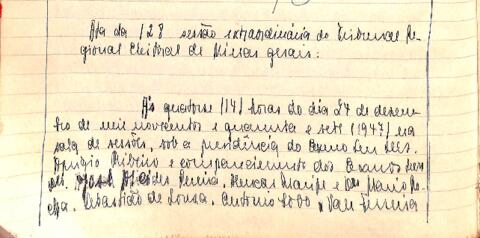 Ata da 128 sessão extraordinária do Tribunal Re-
gional Eleitoral de Minas Gerais:
Ás quatorse (14) horas do dia 27 de dezem-
bro de mil novecentos e quarenta e sete (1947) na
sala de sessões, sob a presidência do Exmo Snr Des.
Aprigio Ribeiro e comparecimento dos Exmos Snrs
José Alcides Pereira, e Mario
Sebastião de Souza, Antonio Lobo,